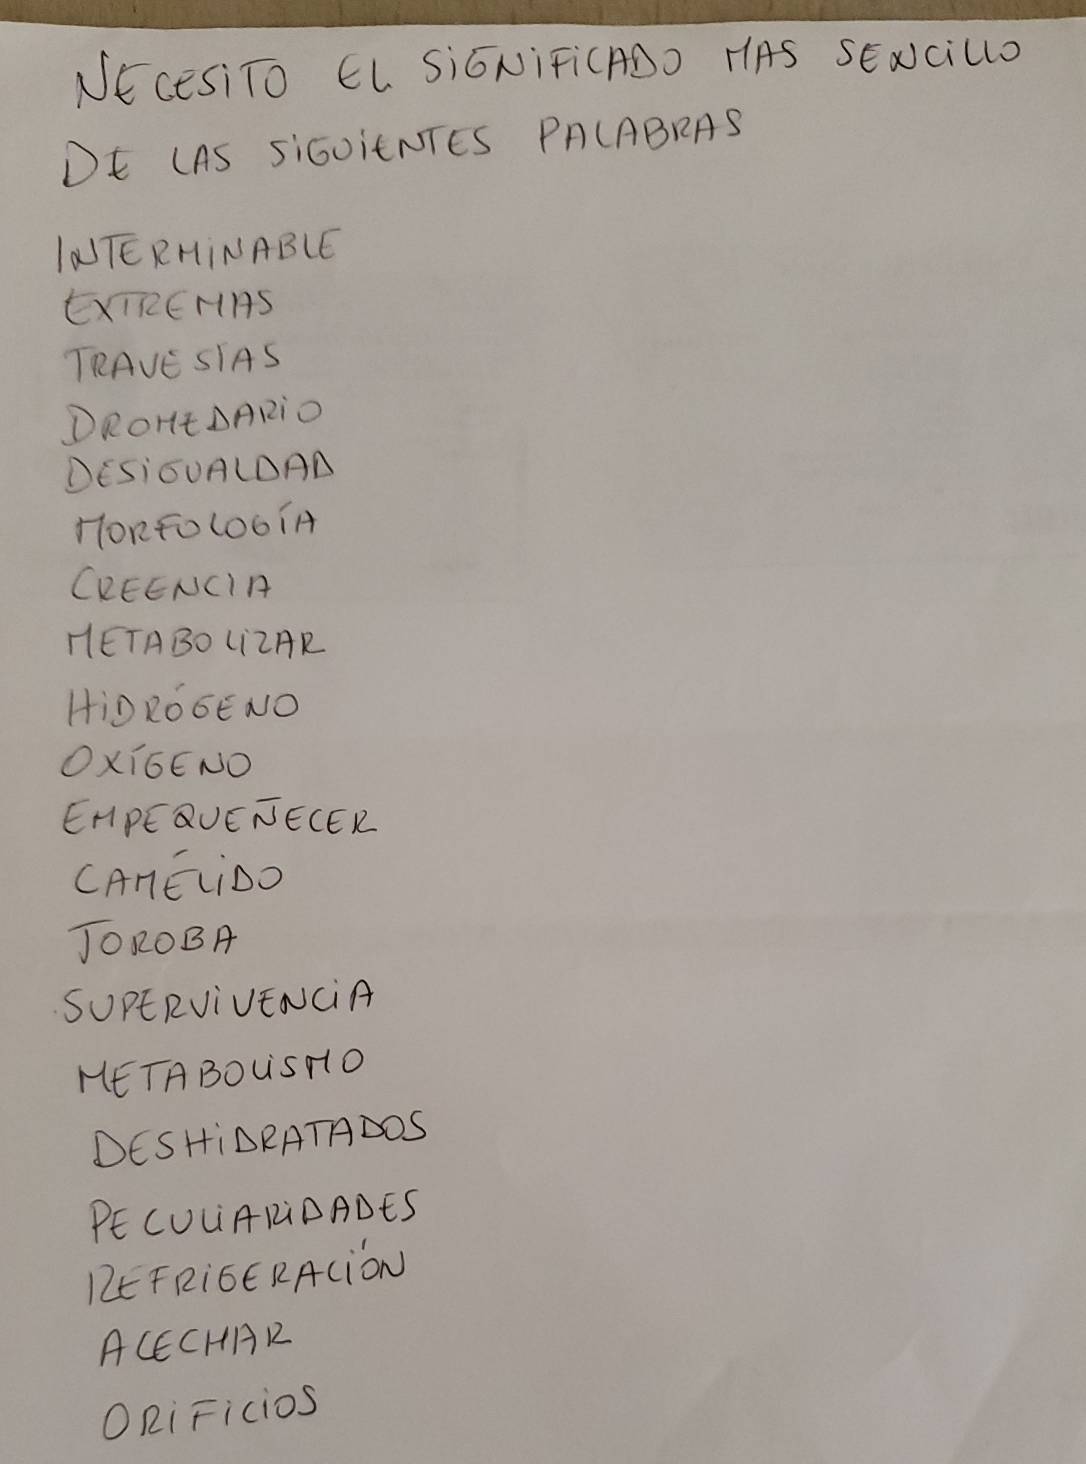 NECESITO EL SIGNIFICADO MAS SENCILLO
DE LAS SIGUIENTES PALABRAS
INTERMINABLE
EXTREMAS
TRAVESÍAS
DROMEDARIO
DESIGUALDAD
MORFOLOGÍA
CREENCIA
METABOLIZAR
HIDRÓGENO
OXÍGENO
EMPEQUEÑECER
CAMÉLIDO
JOROBA
SUPERVIVENCIA
METABOLISMO
DESHIDRATADOS
PECULIARIDADES
REFRIGERACIÓN
ACECHAR
ORIFICIOS